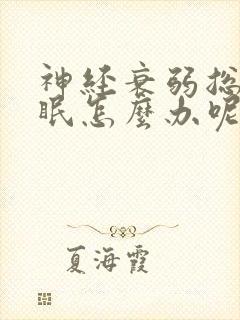 神经衰弱总
眠怎麼办呢
夏海霞